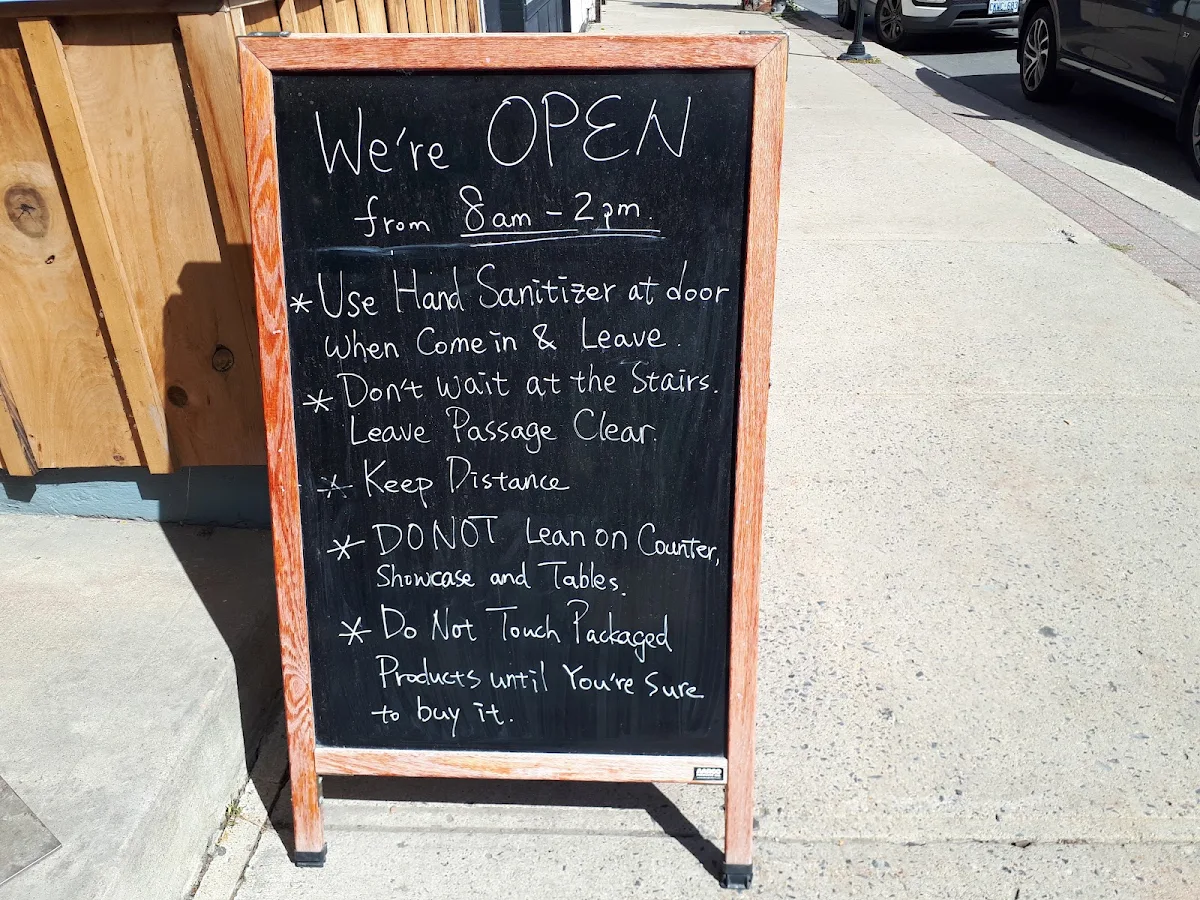 We're OPEN
from 8am - 2pm.
* Use Hand Sanitizer at door
when Come in & Leave.
* Don't wait at the Stairs.
Leave Passage Clear.
* Keep Distance
* DO NOT Lean on Counter,
Showcase and Tables.
* Do Not Touch Packaged
Products until You're Sure
to buy it.